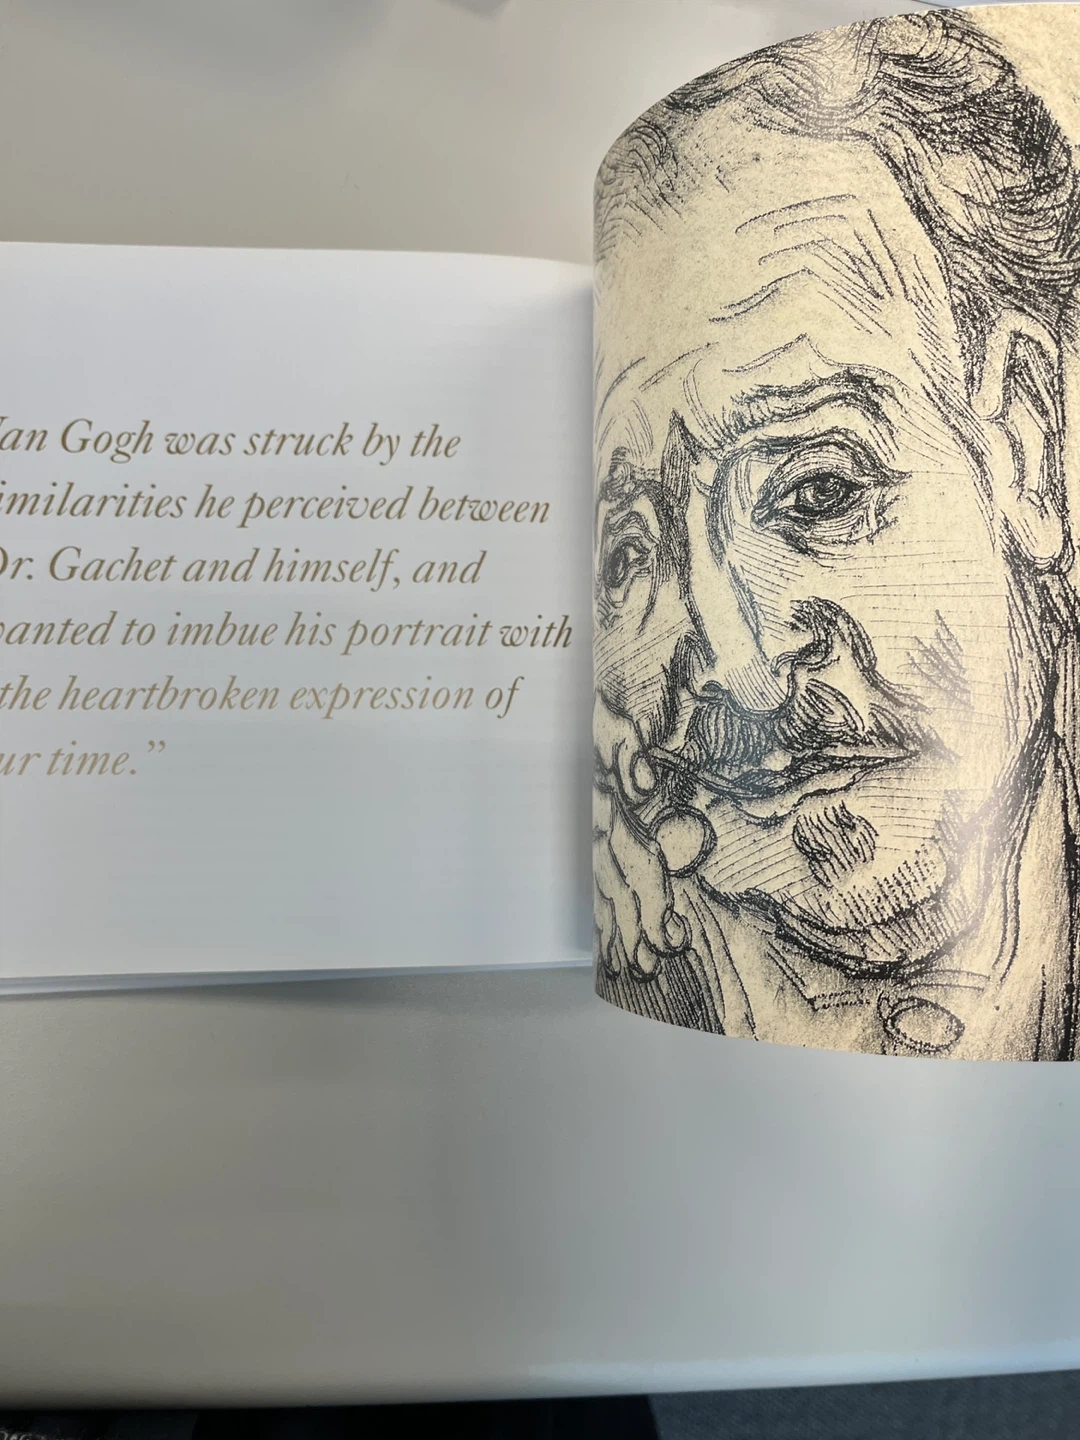 Van Gogh was struck by the
similarities he perceived between
Dr. Gachet and himself, and
wanted to imbue his portrait with
the heartbroken expression of
our time.”